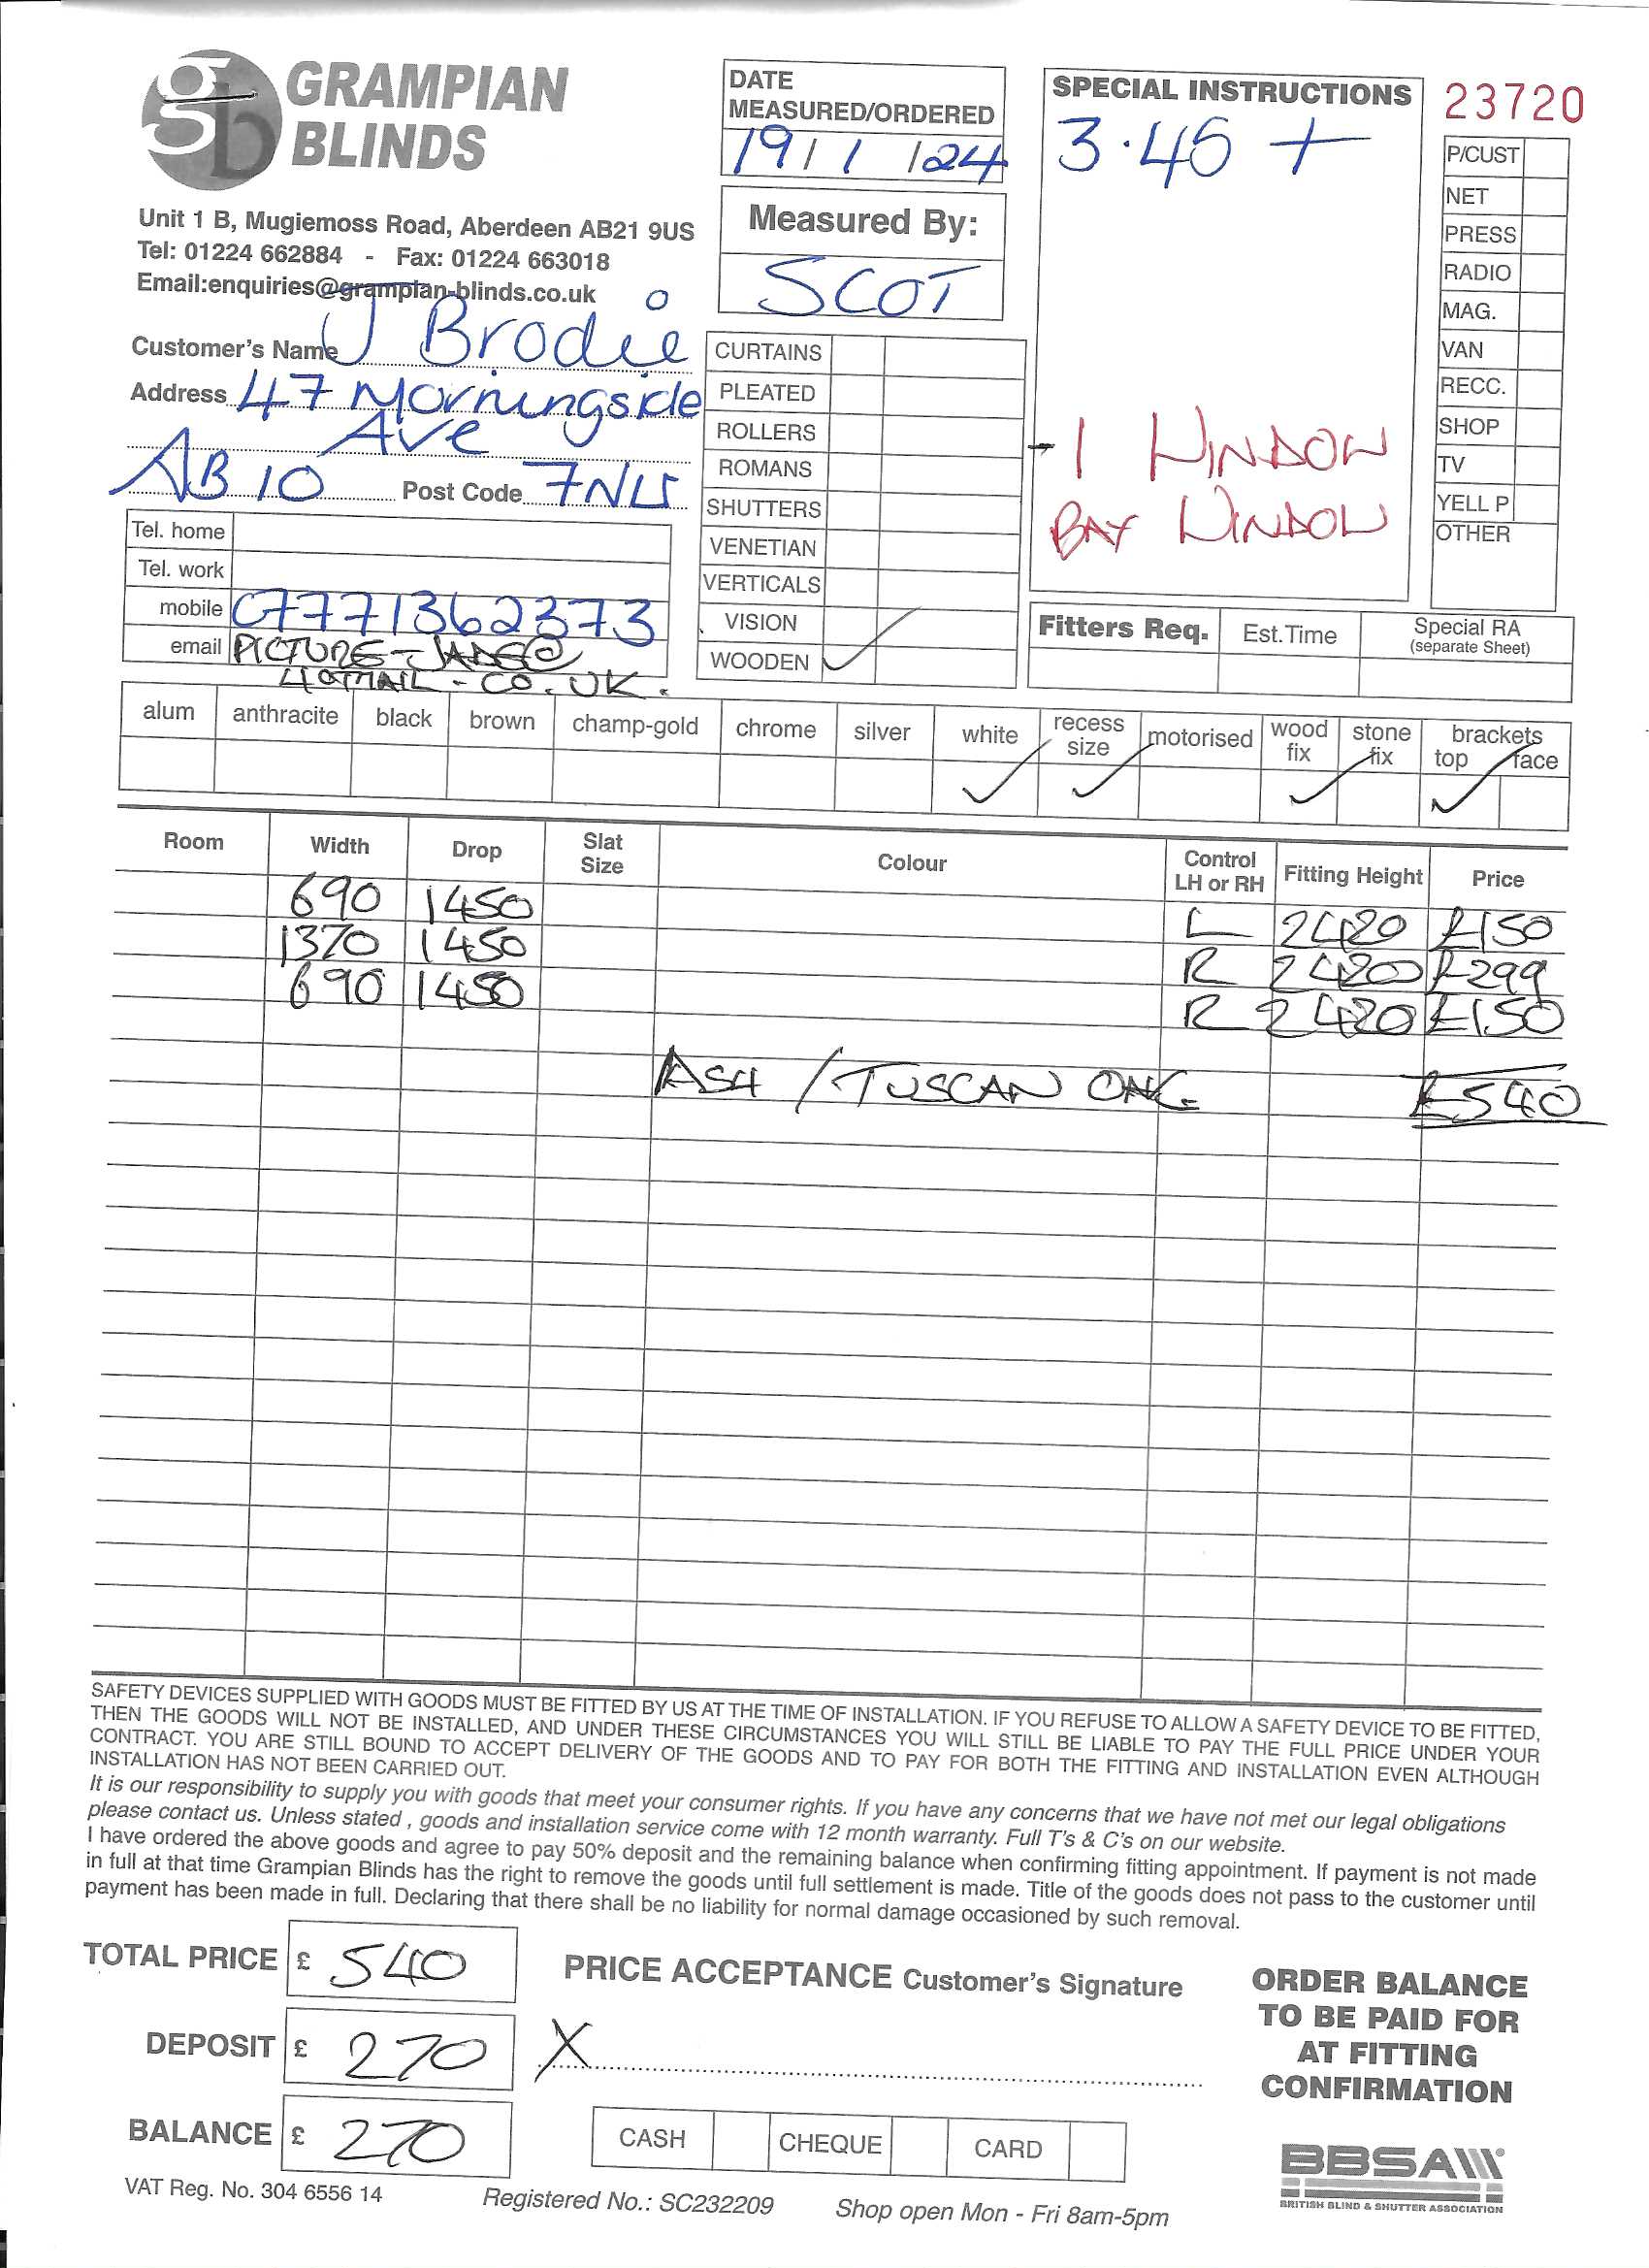 gb GRAMPIAN BLINDS
Unit 1 B, Mugiemoss Road, Aberdeen AB21 9US
Tel: 01224 662884 - Fax: 01224 663018
Email:enquiries@grampian-blinds.co.uk
DATE MEASURED/ORDERED
19/1/24
Measured By:
SCOT
SPECIAL INSTRUCTIONS
3.45 +
- 1 WINDOW
BAY WINDOW
23720
P/CUST
NET
PRESS
RADIO
MAG.
VAN
RECC.
SHOP
TV
YELL P
OTHER
Customer's Name J Brodie
Address 47 Morningside
Ave
AB10 Post Code 7NU
Tel. home
Tel. work
mobile 07771362373
email PICTURE-JADE@
HOTMAIL.CO.UK.
CURTAINS
PLEATED
ROLLERS
ROMANS
SHUTTERS
VENETIAN
VERTICALS
VISION
WOODEN ✓
Fitters Req. Est.Time Special RA (separate Sheet)
alum anthracite black brown champ-gold chrome silver white recess size motorised wood fix stone fix brackets top face
✓ ✓ ✓ ✓
Room Width Drop Slat Size Colour Control LH or RH Fitting Height Price
690 1450 L 2420 £150
1370 1450 R 2420 £299
690 1450 R 2420 £150
ASH / TUSCAN OAK £540
SAFETY DEVICES SUPPLIED WITH GOODS MUST BE FITTED BY US AT THE TIME OF INSTALLATION. IF YOU REFUSE TO ALLOW A SAFETY DEVICE TO BE FITTED,
THEN THE GOODS WILL NOT BE INSTALLED, AND UNDER THESE CIRCUMSTANCES YOU WILL STILL BE LIABLE TO PAY THE FULL PRICE UNDER YOUR
CONTRACT. YOU ARE STILL BOUND TO ACCEPT DELIVERY OF THE GOODS AND TO PAY FOR BOTH THE FITTING AND INSTALLATION EVEN ALTHOUGH
INSTALLATION HAS NOT BEEN CARRIED OUT.
It is our responsibility to supply you with goods that meet your consumer rights. If you have any concerns that we have not met our legal obligations
please contact us. Unless stated , goods and installation service come with 12 month warranty. Full T's & C's on our website.
I have ordered the above goods and agree to pay 50% deposit and the remaining balance when confirming fitting appointment. If payment is not made
in full at that time Grampian Blinds has the right to remove the goods until full settlement is made. Title of the goods does not pass to the customer until
payment has been made in full. Declaring that there shall be no liability for normal damage occasioned by such removal.
TOTAL PRICE £ 540
DEPOSIT £ 270
BALANCE £ 270
PRICE ACCEPTANCE Customer's Signature
X
CASH CHEQUE CARD
ORDER BALANCE
TO BE PAID FOR
AT FITTING
CONFIRMATION
BBSA
BRITISH BLIND & SHUTTER ASSOCIATION
VAT Reg. No. 304 6556 14
Registered No.: SC232209
Shop open Mon - Fri 8am-5pm